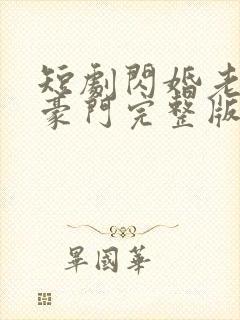 短劇閃婚老
豪門完整版
畢國華